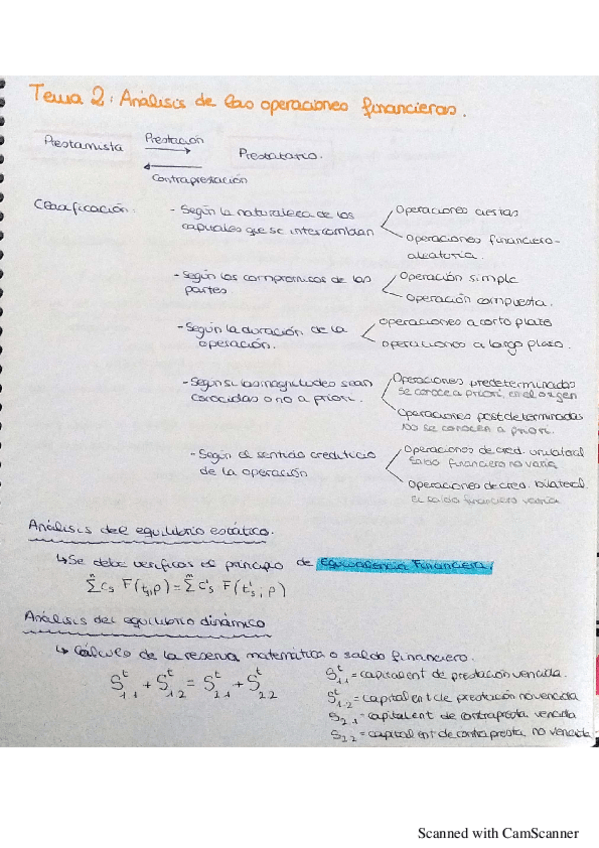 Tema 2: Análisis de las operaciones financieras.
Prestamista Prestación Prestatario.
Contraprestación
Clasificación. - Según la naturaleza de los capitales que se intercambian
Operaciones ciertas
Operaciones financiero-aleatoria.
- Según los compromisos de las partes
Operación simple
Operación compuesta.
- Según la duración de la operación.
Operaciones a corto plazo
operaciones a largo plazo.
- Según si las magnitudes sean conocidas o no a priori.
Operaciones predeterminadas
Se conoce a priori, en el origen
Operaciones postdeterminadas
No se conocen a priori.
- Según el sentido crediticio de la operación
Operaciones de cred. unilateral
Saldo financiero no varía
Operaciones de cred. bilateral
El saldo financiero varía
Análisis del equilibrio estático.
↳ Se debe verificar el principio de Equivalencia Financiera
Σⁿ Cs F(ts,p) = Σⁿ C's F(t's,p)
Análisis del equilibrio dinámico
↳ Cálculo de la reserva matemática o saldo financiero.
S₁.₁ᵗ + S₁.₂ᵗ = S₂.₁ᵗ + S₂.₂ᵗ
S₁.₁ᵗ = capital en t de prestación vencida.
S₁.₂ᵗ = capital en t de prestación no vencida
S₂.₁ = capital en t de contrapresta vencida
S₂.₂ = capital en t de contrapresta no vencida
Scanned with CamScanner